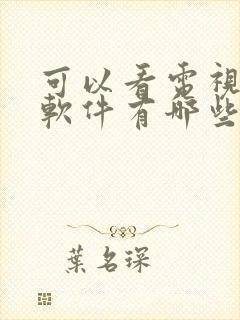 可以看電視
軟件有哪些
葉名琛